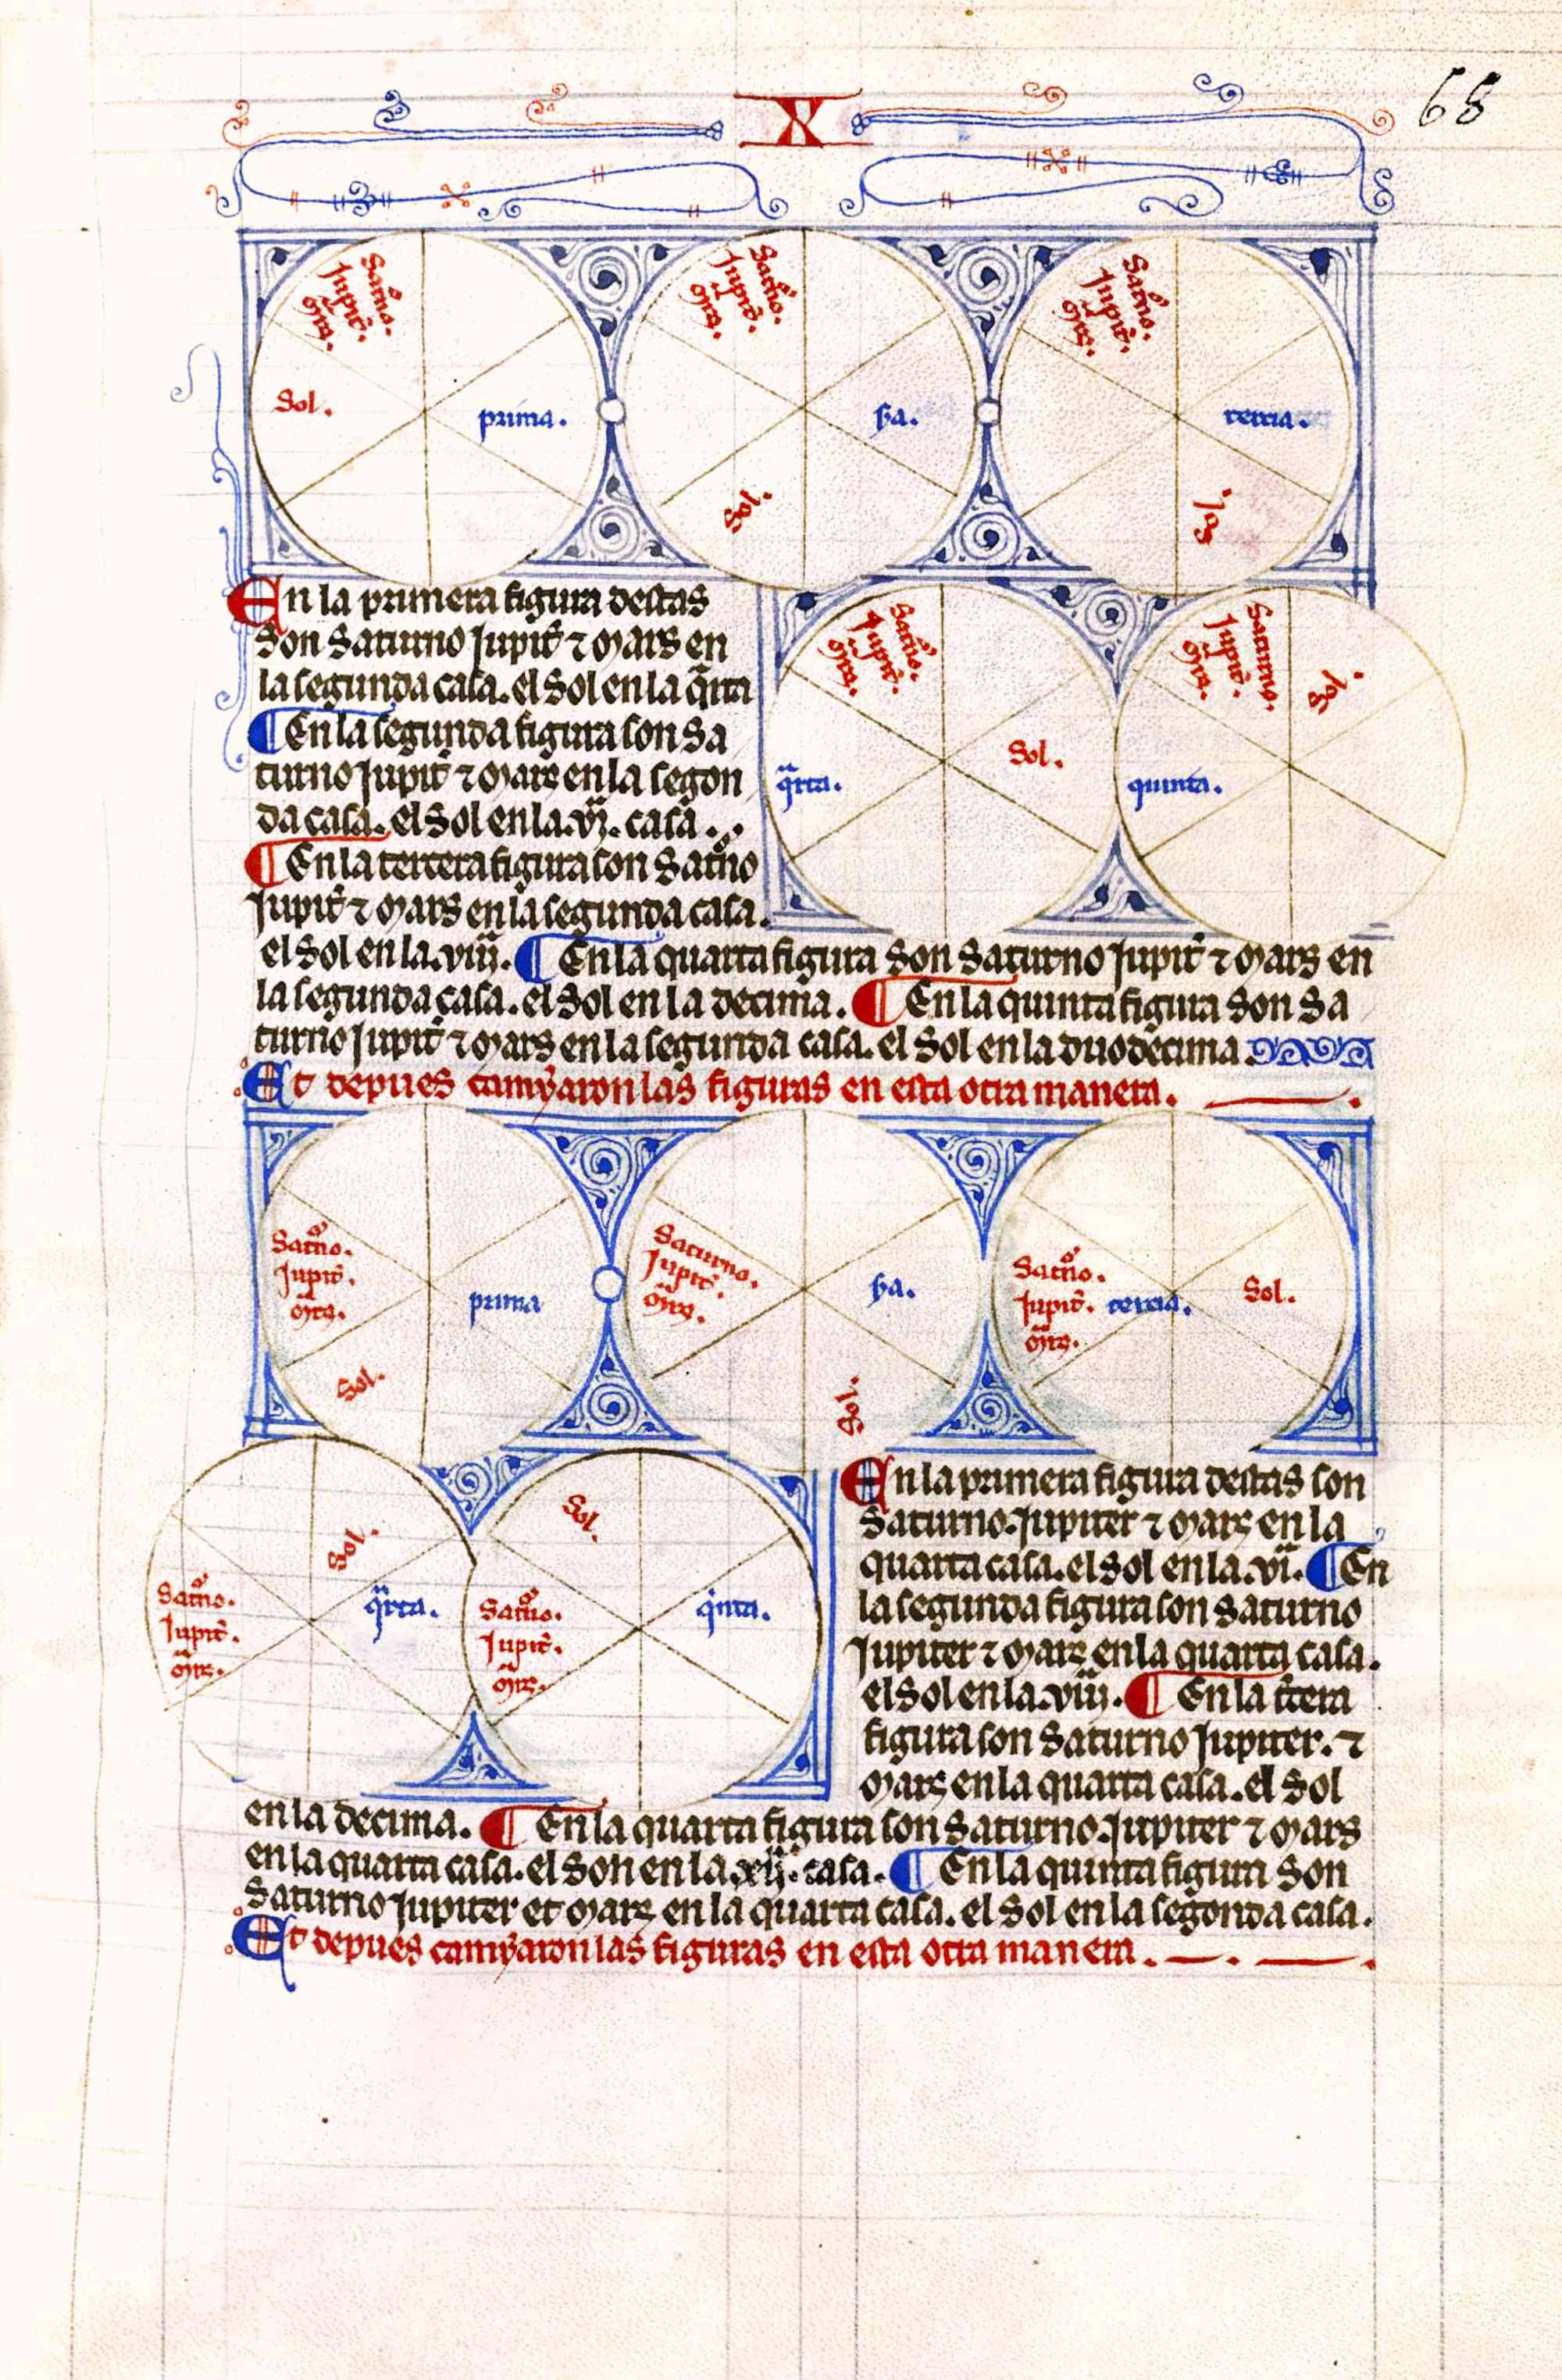 68
X
Satño.
Jupit̃.
Mrs.
Sol.
prima.
Satño.
Jupit̃.
Mrs.
Sol.
ẞa.
Satño.
Jupit̃.
Mrs.
Sol.
tercia.
En la primera figura destas
son Saturno Jupit̃ ⁊ Mars en
la segunda casa. el Sol en la q̃rta
¶ En la segunda figura son Sa
turno Jupit̃ ⁊ Mars en la segon
da casa. el Sol en la .vj. casa.
¶ En la tercera figura son Satño
Jupit̃ ⁊ Mars en la segunda casa.
el Sol en la .viij. ¶ En la quarta figura son Saturno Jupit̃ ⁊ Mars en
la segunda casa. el Sol en la decima. ¶ En la quinta figura son Sa
turno Jupit̃ ⁊ Mars en la segunda casa. el Sol en la duodecima.
Satño.
Jupit̃.
Mrs.
Sol.
q̃rta.
Saturno.
Jupit̃.
Mrs.
Sol.
quinta.
Et depues camyaron las figuras en esta otra manera.
Satño.
Jupit̃.
Mrs.
Sol.
prima
Saturno.
Jupit̃.
Mrs.
Sol.
ẞa.
Satño.
Jupit̃.
Mrs.
tercia.
Sol.
Satño.
Jupit̃.
Mrs.
Sol.
q̃rta.
Satño.
Jupit̃.
Mrs.
Sol.
q̃nta.
En la primera figura destas son
Saturno. Jupiter ⁊ Mars en la
quarta casa. el Sol en la .vi. ¶ En
la segunda figura son Saturno
Jupiter ⁊ Mars en la quarta casa.
el Sol en la .viij. ¶ En la t̃cera
figura son Saturno Jupiter. ⁊
Mars en la quarta casa. el Sol
en la decima. ¶ En la quarta figura son Saturno. Jupiter ⁊ Mars
en la quarta casa. el Sol en la .xij. casa. ¶ En la quinta figura son
Saturno Jupiter et Mars en la quarta casa. el Sol en la segonda casa.
Et depues camyaron las figuras en esta otra manera.